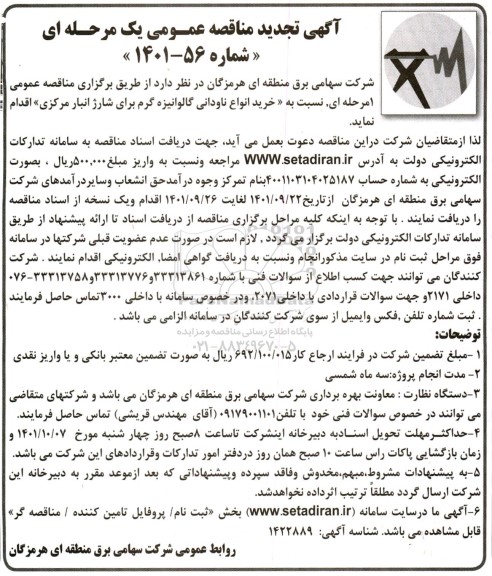 آگهی تجدید مناقصه عمـومی یک مرحـله ای
« شماره ۵۶-۱۴۰۱ »
شرکت سهامی برق منطقه ای هرمزگان در نظر دارد از طریق برگزاری مناقصه عمومی
۱مرحله ای، نسبت به « خرید انواع ناودانی گالوانیزه گرم برای شارژ انبار مرکزی» اقدام
نماید.
لذا ازمتقاضیان شرکت دراین مناقصه دعوت بعمل می آید، جهت دریافت اسناد مناقصه به سامانه تدارکات
الکترونیکی دولت به آدرس WWW.setadiran.ir مراجعه ونسبت به واریز مبلغ۵۰۰,۰۰۰ریال ، بصورت
الکترونیکی به شماره حساب ۴۰۰۱۱۰۳۱۰۴۰۲۵۱۸۷بنام تمرکز وجوه درآمدحق انشعاب وسایردرآمدهای شرکت
سهامی برق منطقه ای هرمزگان ازتاریخ۱۴۰۱/۰۹/۲۲ لغایت ۱۴۰۱/۰۹/۲۶ اقدام ویک نسخه از اسناد مناقصه
را دریافت نمایند . با توجه به اینکه کلیه مراحل برگزاری مناقصه از دریافت اسناد تا ارائه پیشنهاد از طریق
سامانه تدارکات الکترونیکی دولت برگزار می گردد , لازم است در صورت عدم عضویت قبلی شرکتها در سامانه
فوق مراحل ثبت نام در سایت مذکورانجام ونسبت به دریافت گواهی امضاء الکترونیکی اقدام نمایند . شرکت
کنندگان می توانند جهت کسب اطلاع از سوالات فنی با شماره ۳۳۳۱۳۸۶۱و۳۳۳۱۳۷۷۶و۳۳۳۱۳۷۵۸-۰۷۶
داخلی ۲۱۷۱و جهت سوالات قراردادی با داخلی۲۰۷۱، ودر خصوص سامانه با داخلی ۳۰۰۰تماس حاصل فرمایند
. ثبت شماره تلفن ,فکس وایمیل از سوی شرکت کنندگان در سامانه الزامی می باشد .
پایگاه اطلاع رسانی مناقصه و مزایده
۰۲۱-۸۸۳۴۹۶۷۰-۵
توضیحات:
۱ -مبلغ تضمین شرکت در فرایند ارجاع کار۶۹۲/۱۰۰/۰۱۵ ریال به صورت تضمین معتبر بانکی و یا واریز نقدی
۲- مدت انجام پروژه:سه ماه شمسی
۳-دستگاه نظارت : معاونت بهره برداری شرکت سهامی برق منطقه ای هرمزگان می باشد و شرکتهای متقاضی
می توانند در خصوص سوالات فنی خود با تلفن۰۹۱۷۹۰۰۱۱۰۱ (آقای مهندس قریشی) تماس حاصل فرمایند.
۴-حداکثـرمهلت تحویل اسنـادبه دبیرخانه اینشرکت تاساعت ۸صبح روز چهار شنبه مورخ ۱۴۰۱/۱۰/۰۷ و
زمان بازگشایی پاکات راس ساعت ۱۰ صبح همان روز دردفتر امور تدارکات وقراردادهای این شرکت می باشد.
۵-به پیشنهادات مشروط،مبهم،مخدوش وفاقد سپرده وپیشنهاداتی که بعد ازموعد مقرر به دبیرخانه این
شرکت ارسال گردد مطلقاً ترتیب اثرداده نخواهدشد.
۶-آگهی ما درسایت سامانه (www.setadiran.ir) بخش «ثبت نام/ پروفایل تامین کننده / مناقصه گر»
قابل مشاهده می باشد. شناسه آگهی: ۱۴۲۲۸۸۹
روابط عمومی شرکت سهامی برق منطقه ای هرمزگان